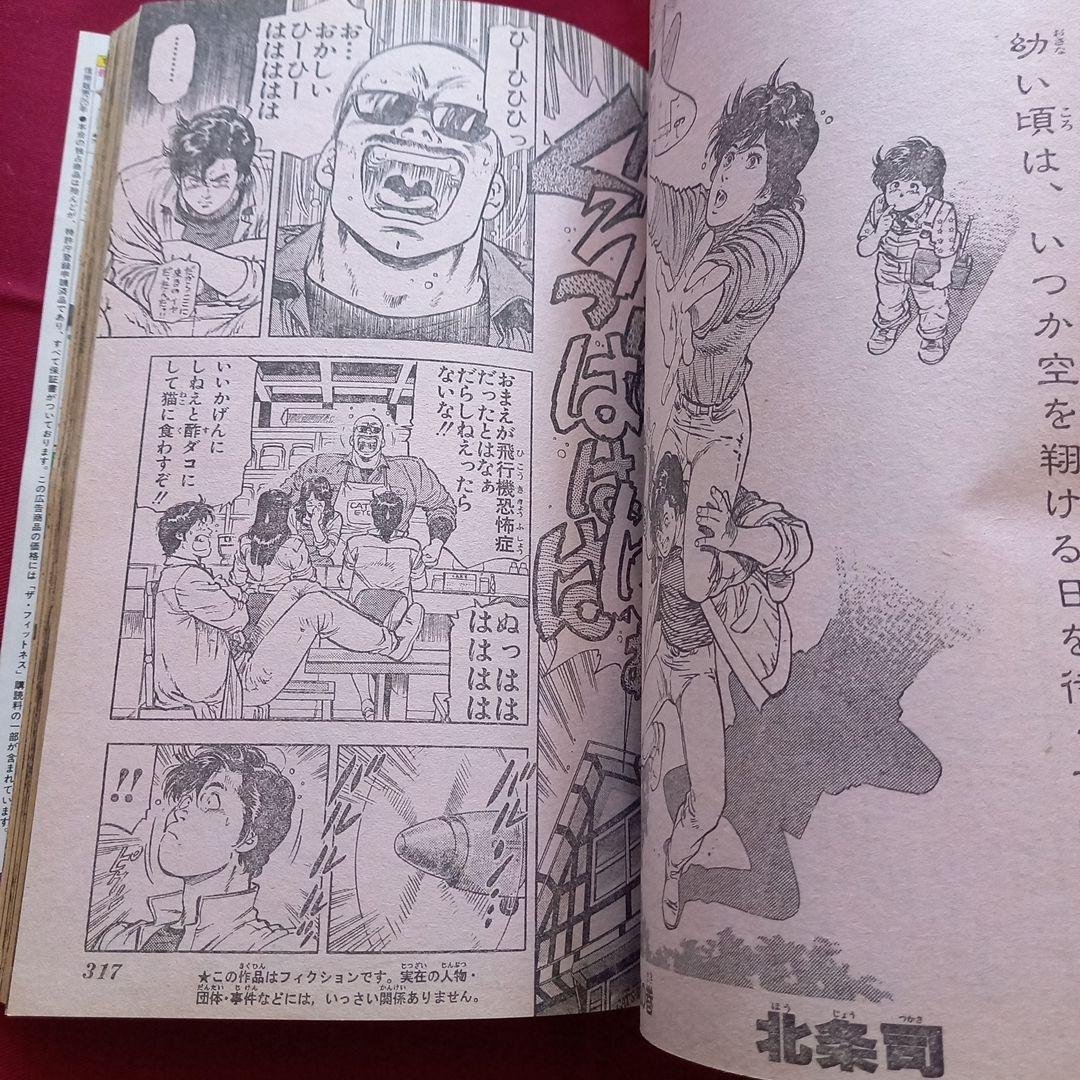 幼い頃は、いつか空を翔ける日を
北条司
ひーひひひっ
お…
おかしい
ひーひー
はははは
…………
だから
おまえが飛行機恐怖症
だったとはなぁ
だらしねえったら
ないな!!
いいかげんに
しねえと酢ダコに
して猫に食わすぞ!!
CAT'S
ぬっはは
はははは
!!
317
★この作品はフィクションです。実在の人物・
団体・事件などには,いっさい関係ありません。
●本会の独占商品は殆んどが、特許庁登録申請済品であり、すべて保証書がついております。この広告商品の価格には「ザ・フィットネス」購読料の一部が含まれています。